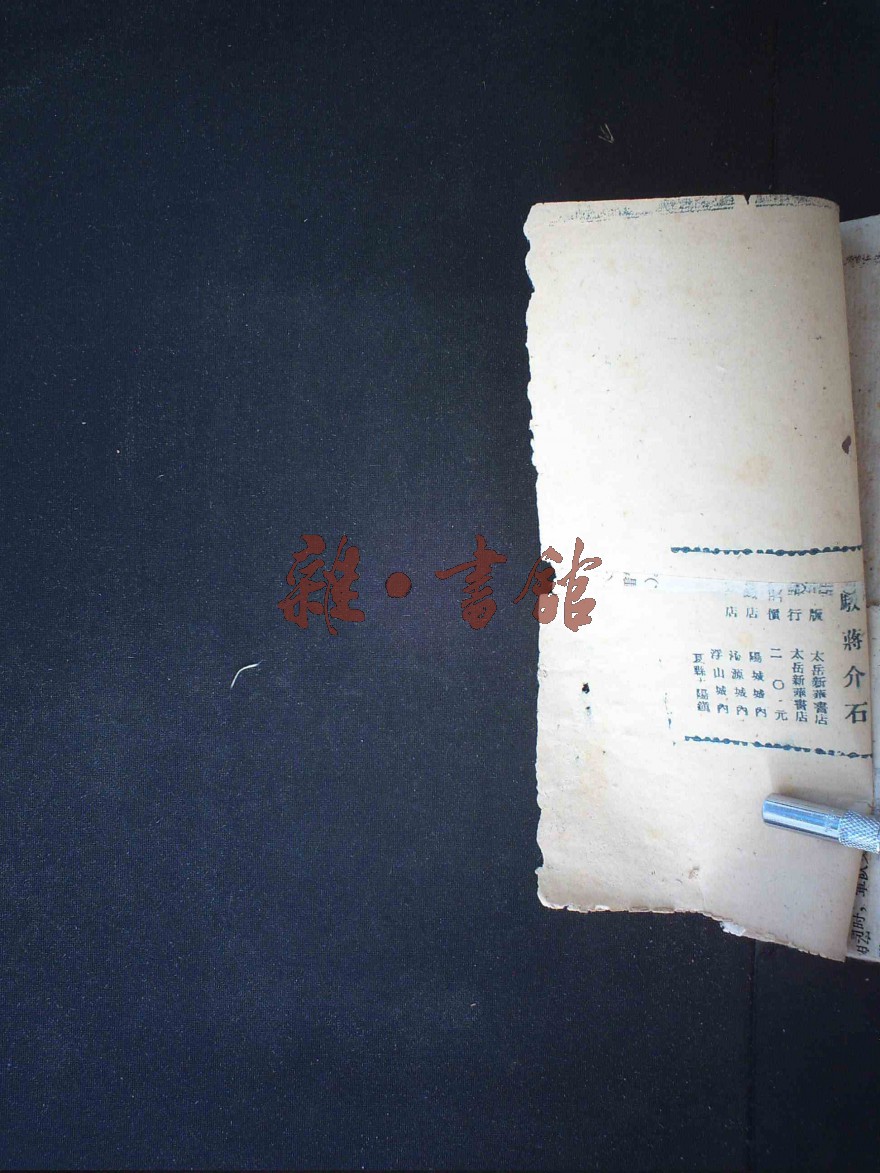 駁蔣介石
版 太岳新華書店
行 太岳新華書店
價 二〇.元
店 陽城城內
店 沁源城內
浮山城內
夏縣 陽鎮
雜·書舘